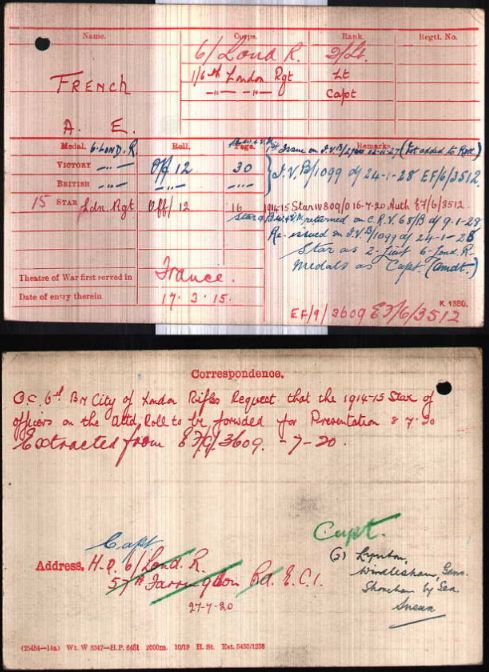 Name. Corps. Rank. Regtl. No.
FRENCH 6/Lond R. 2/Lt.
1/6th London Rgt Lt
A. E. —"— —"— Capt
Medal. 6. LOND. R. Roll. Page. Remarks.
Issue on I.V.B/ (Not added to Roll)
VICTORY —"— Off 12 30 I.V.B/1099 of 24-1-28 EF/6/3512.
BRITISH —"—
15 STAR Ldn. Rgt Off/12 16 1914-15 Star W809/0 16-7-20 Auth EF/6/3512
Star & B.W. & V.M. returned on C.R.V. 68/B of 9-1-28
Re-issued on I.V.B/1099 of 24-1-28
Star as 2-Lieut 6-Lond. R.
Medals as Capt. (Amdt.)
Theatre of War first served in France.
Date of entry therein 17. 3. 15.
K 1380.
EF/9/3609 EF/6/3512
Correspondence.
O.C. 6th Bn City of London Rifles Request that the 1914-15 Star of
officers on the attd. Roll to be forwded for Presentation 8-7-20
Extracted from EF/9/3609. -7-20.
Capt
Capt.
Address. H.Q. 6/Lond. R.
57A Farringdon Rd. E.C.1.
27-7-20
(3) Lynton,
Windlesham Gdns.
Shoreham by Sea.
Sussex
(25454—14a) Wt. W 5347—H.P. 2000m. 10/19 H. St.